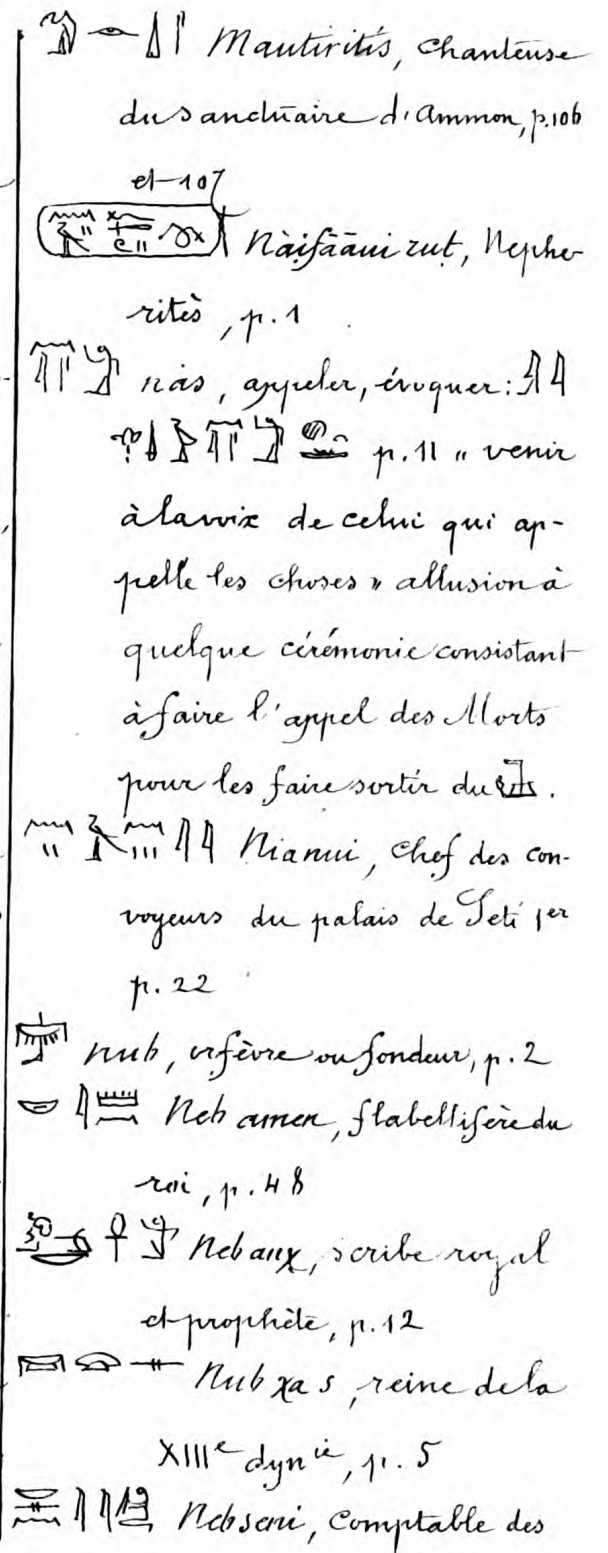 Mautiritis, chanteuse
du sanctuaire d'Ammon, p.106
et 107
Nàifāāui rut, Nephe-
ritès, p. 1
nas, appeler, évoquer:
p. 11 " venir
à la voix de celui qui ap-
pelle les choses " allusion à
quelque cérémonie consistant
à faire l'appel des Morts
pour les faire sortir du .
Nianui, chef des con-
voyeurs du palais de Seti 1er
p. 22
nub, orfèvre ou fondeur, p. 2
Neb amen, flabellifère du
roi, p. 48
Neb anχ, scribe royal
et prophète, p. 12
Nub χa s, reine de la
XIIIe dynie, p. 5
Nebseni, Comptable des